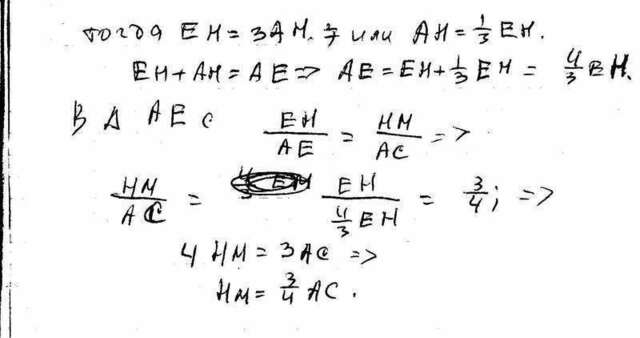 тогда EH = 3AH. или AH = 1/3 EH.
EH + AH = AE => AE = EH + 1/3 EH = 4/3 EH.
В Δ AEC EH/AE = HM/AC =>
HM/AC = EH/(4/3 EH) = 3/4; =>
4 HM = 3AC =>
HM = 3/4 AC.